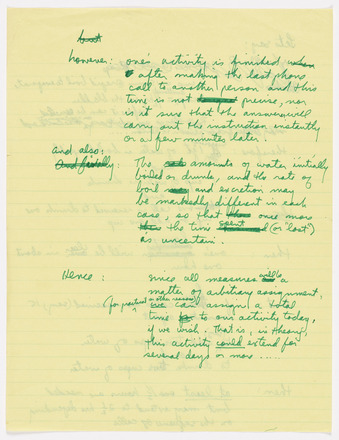 but
however: one's activity is finished when
after making the last phone
call to another person and this
time is not precise, nor
is it sure that the answerer will
carry out the instruction instantly
or a few minutes later.
and also:
And finally: The amounts of water initially
boiled or drunk, and the rate of
boil and excretion may
be markedly different in each
case, so that once more
this the time spent (or "lost")
as uncertain.
Hence: since all measures will be a
matter of arbitrary assignment,
(for practical or other reasons)
we can assign a total
time to our activity today,
if we wish. That is, in theory,
this activity could extend for
several days or more.....